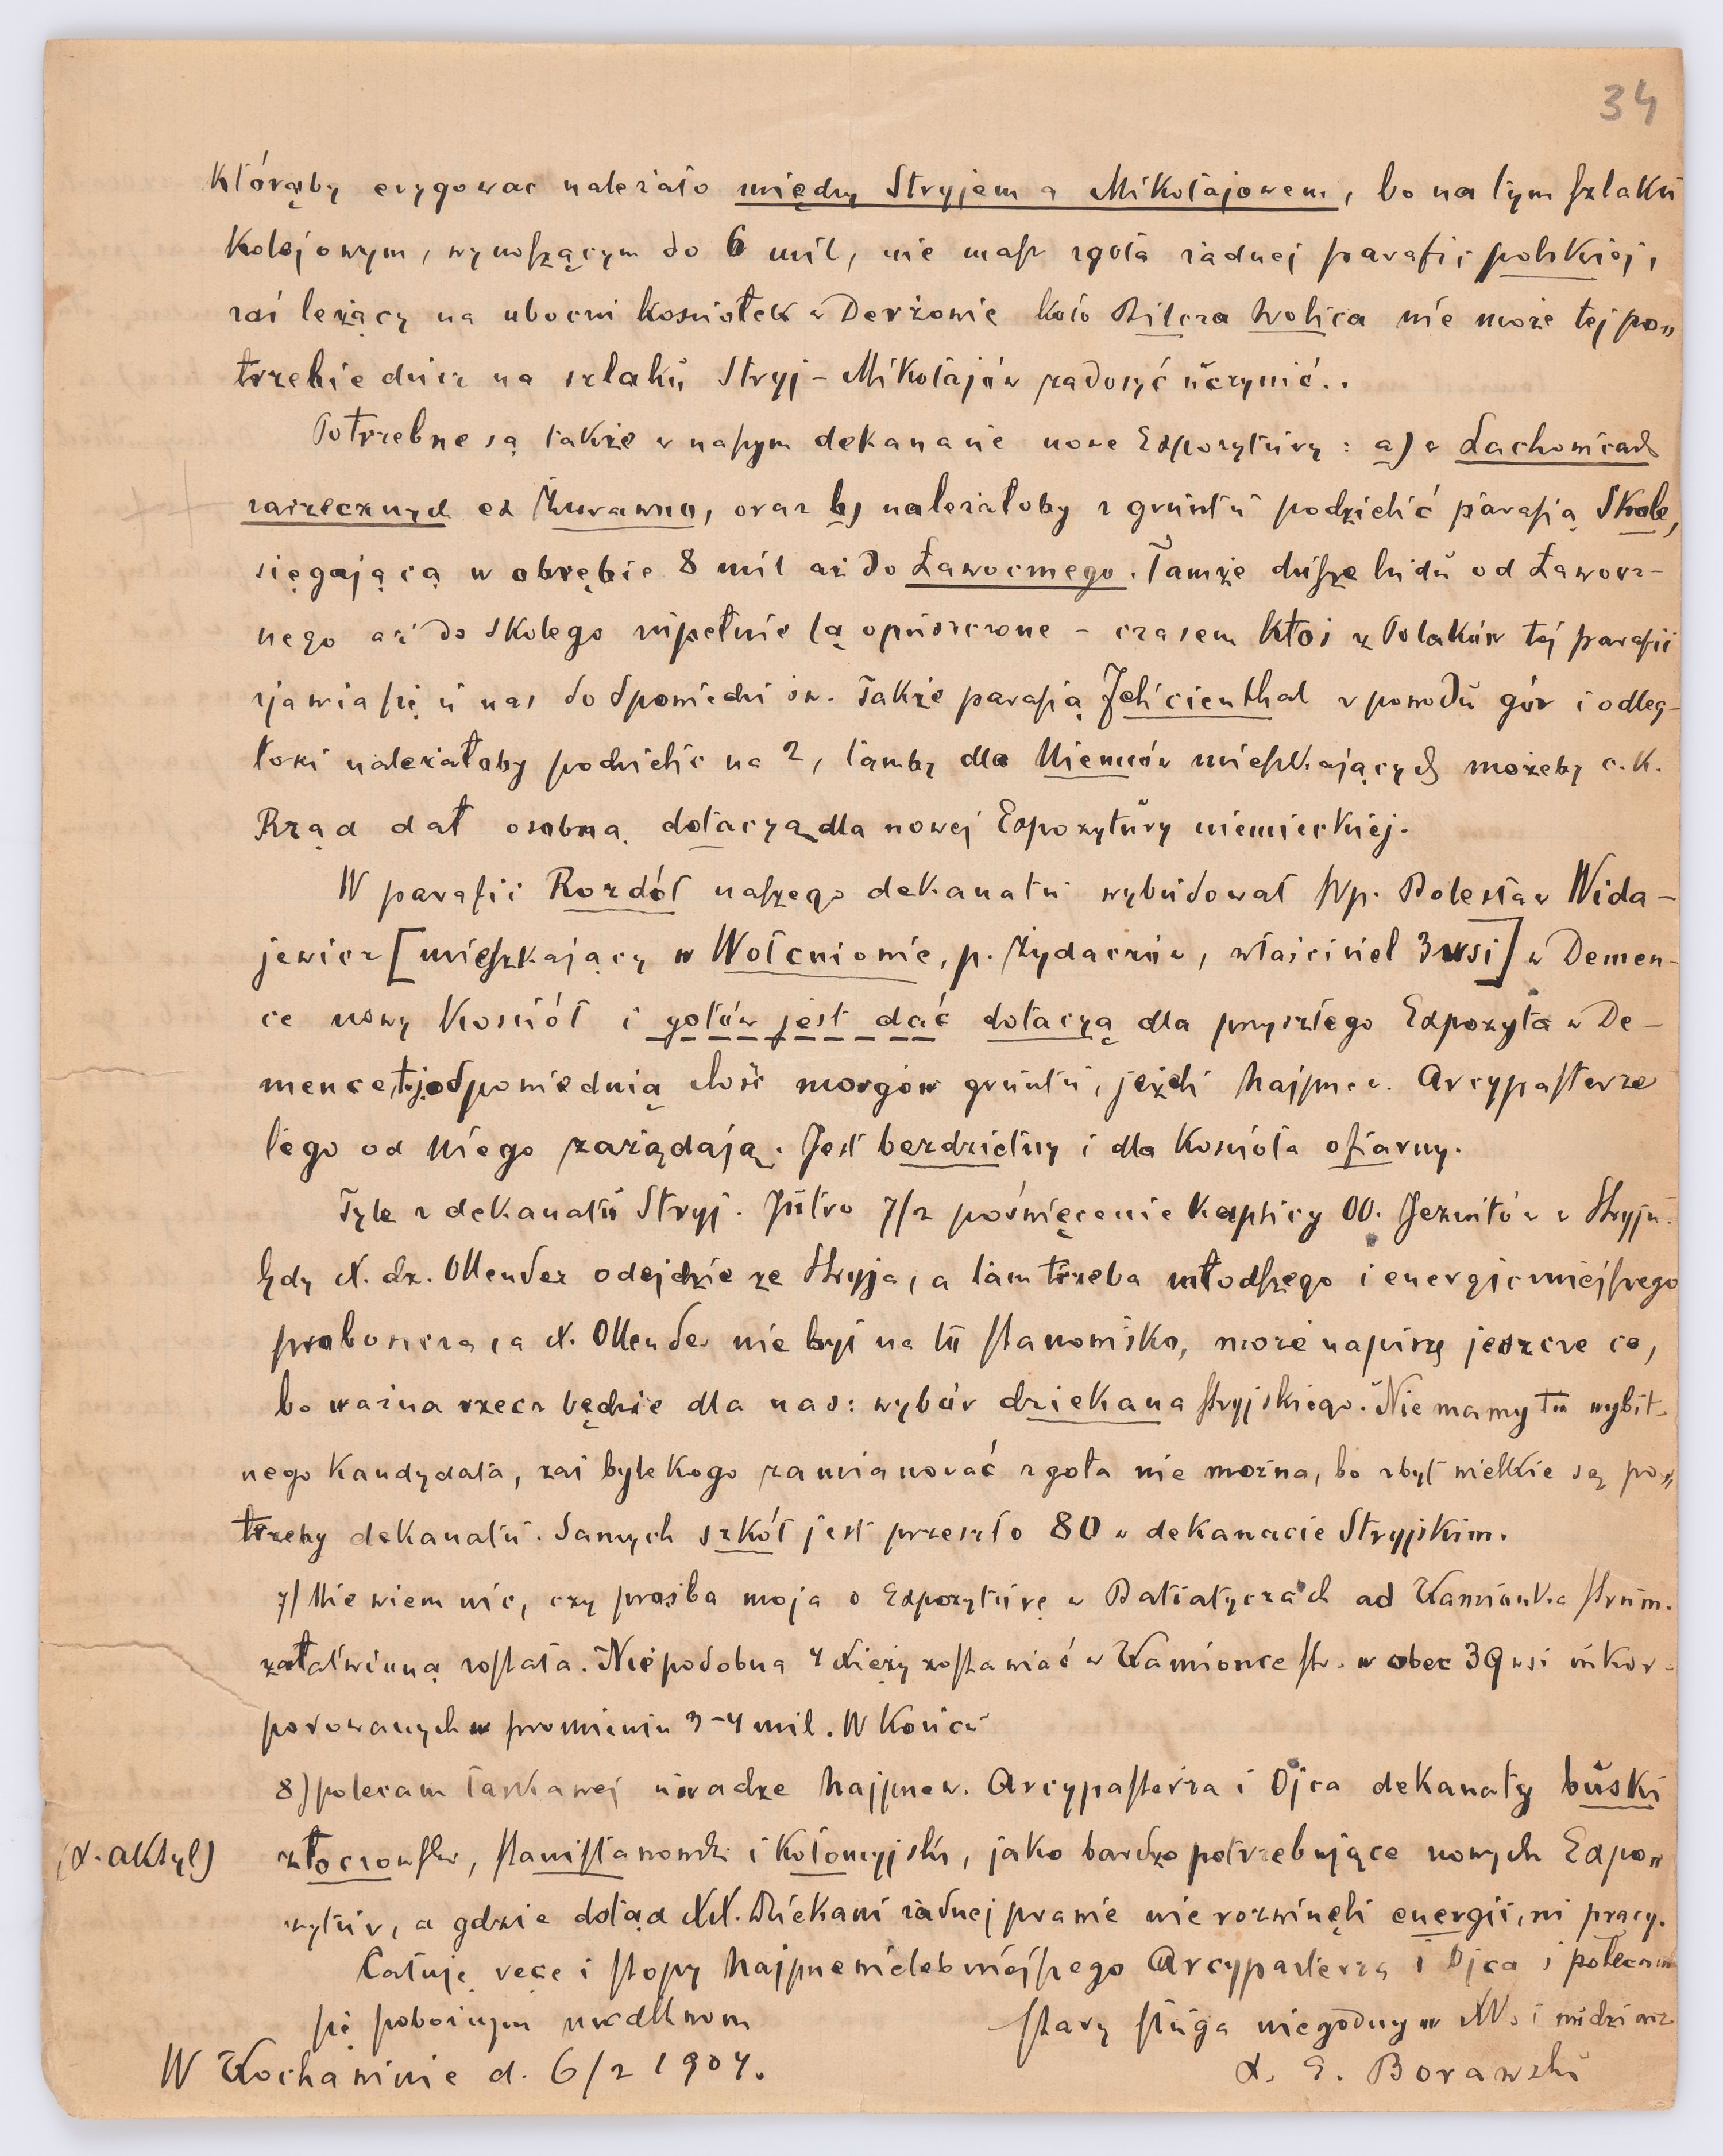 34
którąby erygować należało między Stryjem a Mikołajowem, bo na tym szlaku
kolejowym, wynoszącym do 6 mil, nie masz zgoła żadnej parafii polskiej,
zaś leżący na uboczu kosciołek w Derżowie koło Bilcza Wolica nie może tej po„
trzebie dusz na szlaku Stryj - Mikołajów zadosyć uczynić..
Potrzebne są także w naszym dekanacie nowe Expozytury: a) w Lachowicach
zarzecznych ex Żurawno, oraz b) należałoby z gruntu podzielić parafią Skole,
sięgającą w obrębie 8 mil aż do Ławocznego. Tamże dusze ludu od Ławocz-
nego aż do Skolego zupełnie są opuszczone - czasem ktoś z Polaków tej parafii
zjawia się u nas do Spowiedzi św. Także parafią Felicienthal z powodu gór i odleg-
łości należałoby podzielić na 2, tamby dla Niemców mieszkających możeby c.k.
Rząd dał osobną dotacyą dla nowej Expozytury niemieckiej.
W parafii Rozdół naszego dekanatu wybudował Wp. Bolesław Wida-
jewicz [mieszkający w Wołcniowie, p. Żydaczów, właściciel 3 wsi] w Demen-
ce nowy kościół i gotów jest dać dotacyą dla przyszłego Expozyta w De-
mence, t.j. odpowiednią ilość morgów gruntu, jeżeli Najprzew. Arcypasterze
tego od Niego zażądają. Jest bezdzietny i dla Kościoła ofiarny.
Tyle z dekanatu Stryj. Jutro 7/2 poświęcenie kaplicy OO. Jezuitów w Stryju.
Gdy X. dz. Ollender odejdzie ze Stryja, a tam trzeba młodszego i energiczniejszego
proboszcza, a X. Ollender nie był na tu stanowisko, może napiszę jeszcze co,
bo ważna rzecz będzie dla nas: wybór dziekana stryjskiego. Nie mamy tu wybit-
nego kandydata, zaś bylekogo zamianować zgoła nie można, bo zbyt wielkie są po„
trzeby dekanatu. Samych szkół jest przeszło 80 w dekanacie Stryjskim.
7/ Nie wiem nic, czy prośba moja o Expozyturę w Batiatyczach ad Kamionka strum.
załatwioną została. Niepodobna 4 Xięży zostawiać w Kamionce str. w obec 39 wsi inkor-
porowanych w promieniu 3-4 mil. W końcu
8) polecam łaskawej uwadze Najprzew. Arcypasterza i Ojca dekanaty buski
(X. aktyl)
złoczowski, stanisławowski i kołomyjski, jako bardzo potrzebujące nowych Expo„
zytur, a gdzie dotąd XX. Dziekani żadnej prawie nie rozwinęli energii, ni pracy.
Całuję ręce i stopy Najprzewielebniejszego Arcypasterza i Ojca i polecam
się pobożnym modłom
stary sługa niegodny w XP. i
W Kochawinie d. 6/2 1904.
X. E. Borawski